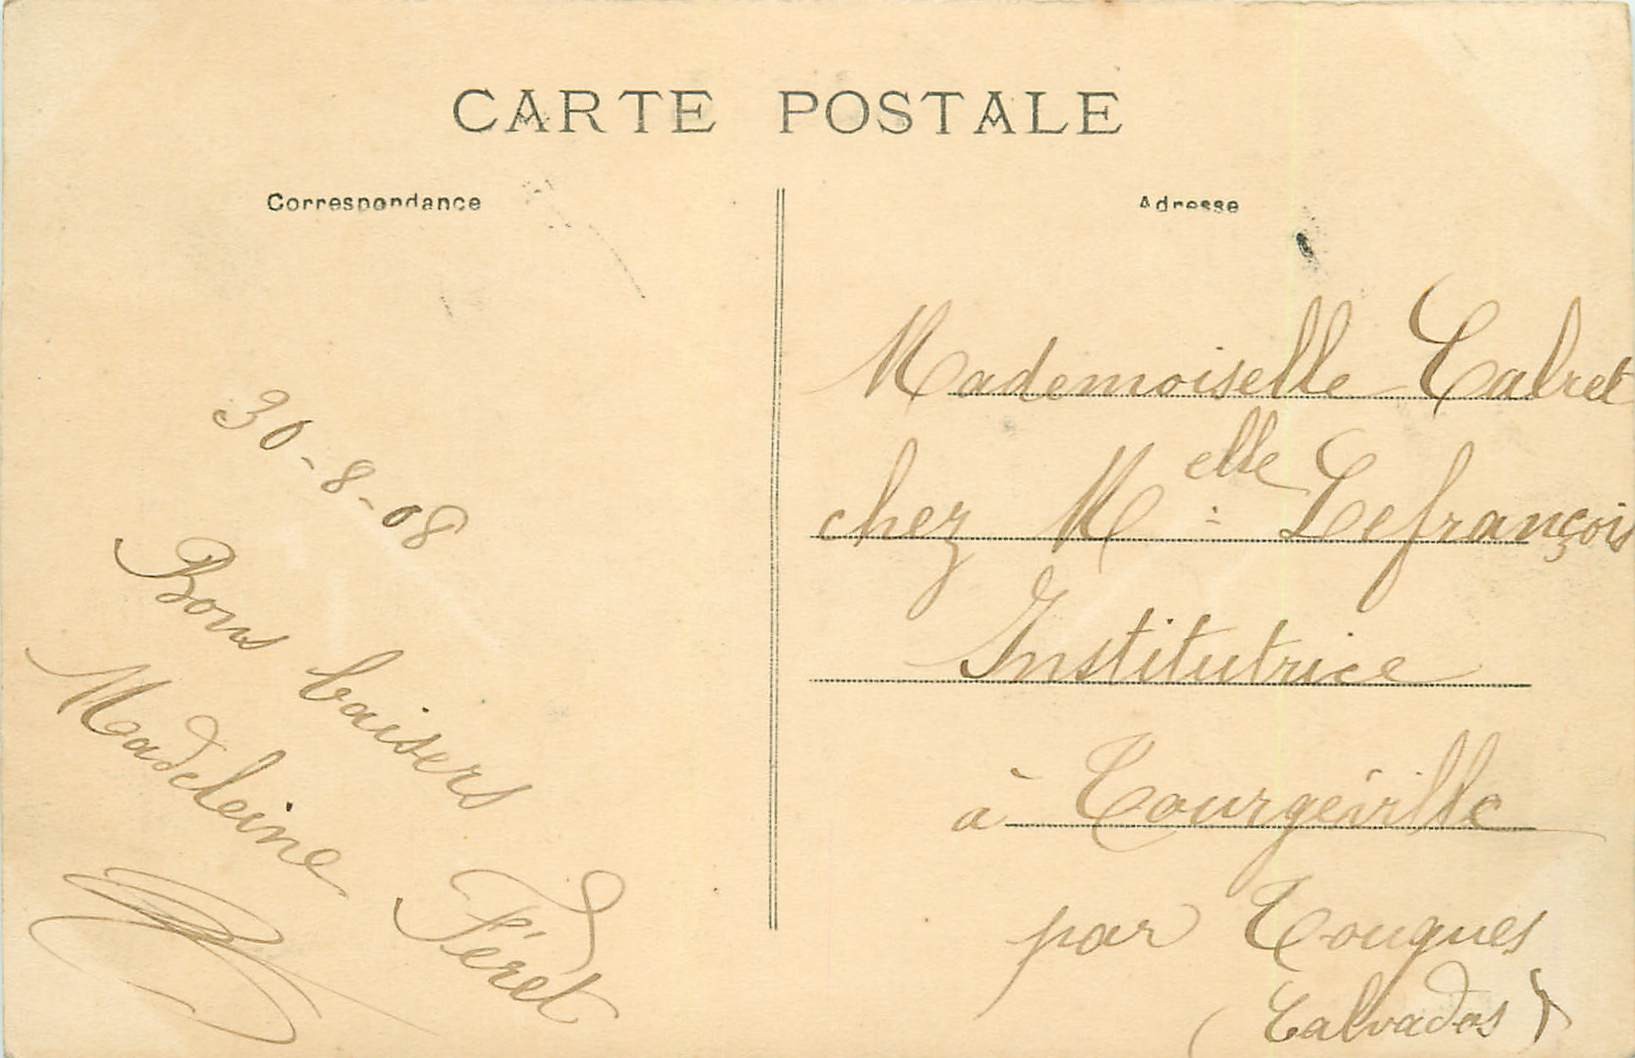 CARTE POSTALE
Correspondance
Adresse
30-8-08
Bons baisers
Madeleine Féret
Mademoiselle
chez Melle Lefrançois
Institutrice
à Tourgéville
par Touques
(Calvados)